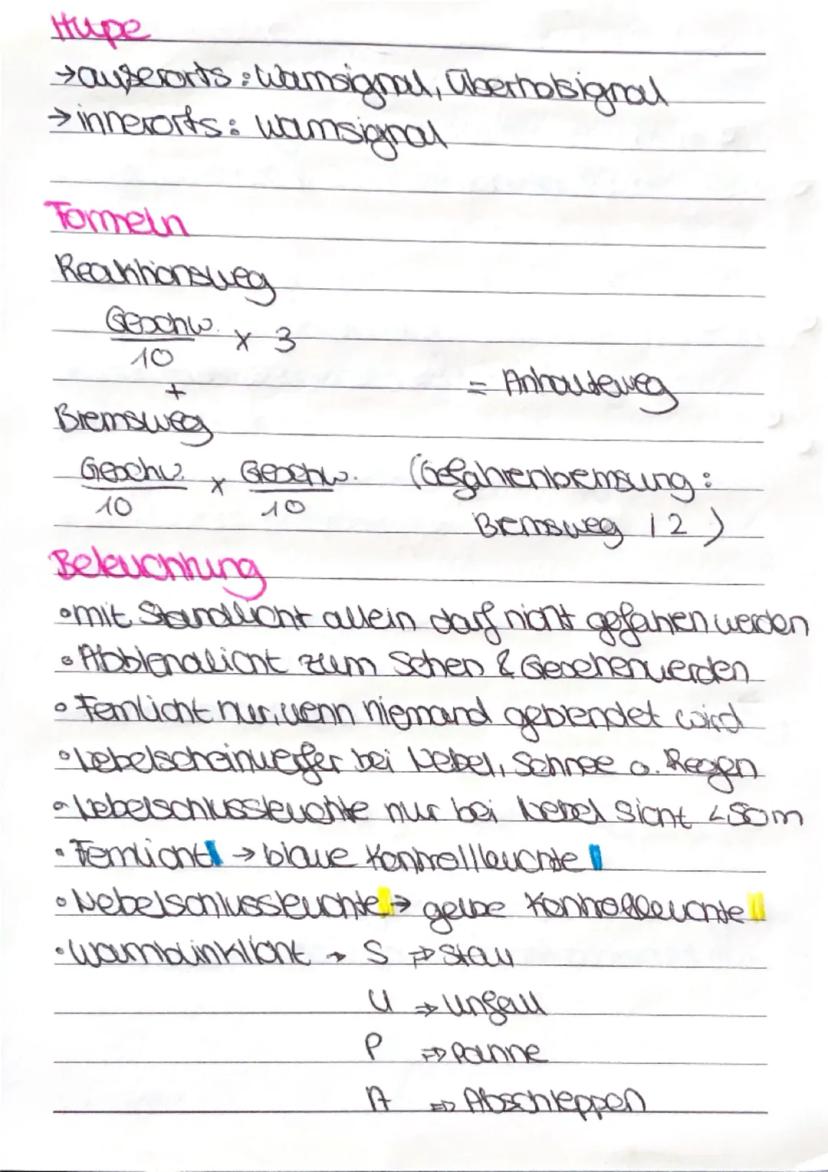 Hupe
→außerorts: Warnsignal, Überholsignal
→innerorts: Warnsignal
Formeln
Reaktionsweg
Geschw. / 10 × 3
+ = Anhalteweg
Bremsweg
Geschw. / 10 × Geschw. / 10 (Gefahrenbremsung:
Bremsweg / 2)
Beleuchtung
• mit Standlicht allein darf nicht gefahren werden
• Abblendlicht zum Sehen & Gesehenwerden
• Fernlicht nur, wenn niemand geblendet wird
• Nebelscheinwerfer bei Nebel, Schnee o. Regen
• Nebelschlussleuchte nur bei Nebel Sicht <50m
• Fernlicht → blaue Kontrollleuchte
• Nebelschlussleuchte → gelbe Kontrollleuchte
• Warnblinklicht → S ⇒ Stau
U ⇒ Unfall
P ⇒ Panne
A ⇒ Abschleppen